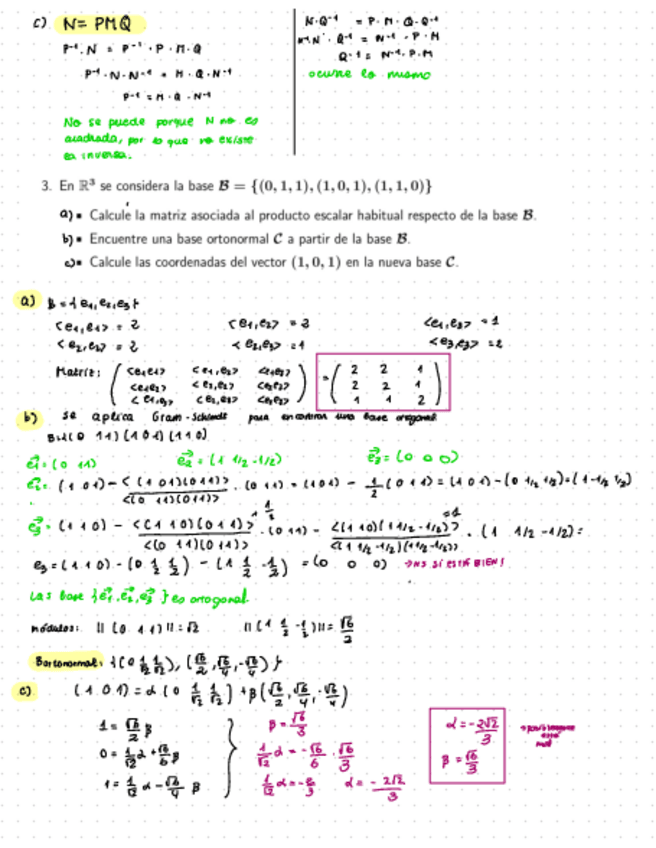 c) N = PMQ
P⁻¹·N = P⁻¹·P·M·Q
P⁻¹·N·N⁻¹ = M·Q·N⁻¹
P⁻¹ = M·Q·N⁻¹
No se puede porque N no es
cuadrada, por lo que no existe
la inversa.
N·Q⁻¹ = P·M·Q·Q⁻¹
N⁻¹N·Q⁻¹ = N⁻¹·P·M
Q⁻¹ = N⁻¹·P·M
ocurre lo mismo
3. En ℝ³ se considera la base B = {(0, 1, 1), (1, 0, 1), (1, 1, 0)}
a) Calcule la matriz asociada al producto escalar habitual respecto de la base B.
b) Encuentre una base ortonormal C a partir de la base B.
c) Calcule las coordenadas del vector (1, 0, 1) en la nueva base C.
a) B = {e₁, e₂, e₃}
<e₁,e₁> = 2 <e₁,e₂> = 2 <e₁,e₃> = 1
<e₂,e₂> = 2 <e₂,e₃> = 1 <e₃,e₃> = 2
Matriz:
= ( 2 2 1
2 2 1
1 1 2 )
b) se aplica Gram-Schmidt para encontrar una base ortogonal.
B = {(0 1 1) (1 0 1) (1 1 0)}
e₁ = (0 1 1) e₂ = (1 1/2 -1/2) e₃ = (0 0 0)
e₂ = (1 0 1) - <(1 0 1)(0 1 1)> / <(0 1 1)(0 1 1)> · (0 1 1) = (1 0 1) - 1/2 (0 1 1) = (1 0 1) - (0 1/2 1/2) = (1 -1/2 1/2)
e₃ = (1 1 0) - <(1 1 0)(0 1 1)> / <(0 1 1)(0 1 1)> · (0 1 1) - <(1 1 0)(1 1/2 -1/2)> / <(1 1/2 -1/2)(1 1/2 -1/2)> · (1 1/2 -1/2) =
e₃ = (1 1 0) - (0 1/2 1/2) - (1 1/2 -1/2) = (0 0 0) → NO SÍ ESTÁ BIEN!
Las base {e₁, e₂, e₃} es ortogonal.
módulos: ||(0 1 1)|| = √2 ||(1 1/2 -1/2)|| = √6/2
Bortonormal: {(0 1/√2 1/√2), (√6/2, √6/4, -√6/4)}
c) (1 0 1) = α (0 1/√2 1/√2) + β (√6/2, √6/4, -√6/4)
1 = √6/2 β
0 = 1/√2 α + √6/6 β
1 = 1/√2 α - √6/4 β
β = √6/3
1/√2 α = -√6/6 · √6/3
1/√2 α = -2/3 α = -2√2/3
α = -2√2/3
β = √6/3
mal